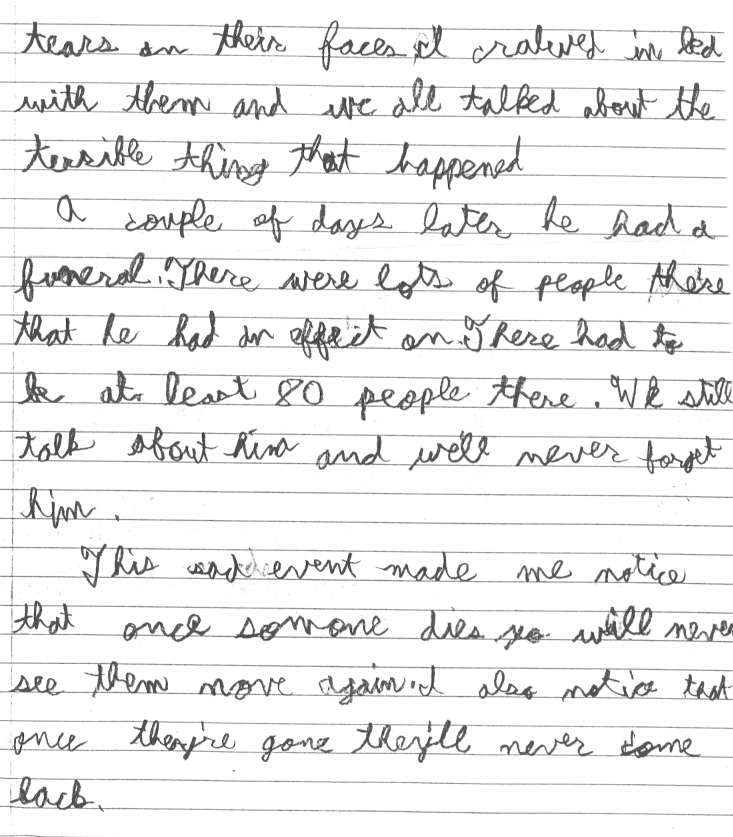 tears on their faces. I cralwed in bed
with them and we all talked about the
terrible thing that happened
A couple of days later he had a
funeral. There were lots of people there
that he had an effect on. There had to
be at least 80 people there. We still
talk about him and we'll never forget
him.
This sad event made me notice
that once somone dies yo will never
see them move again. I also notice that
once they're gone they'll never come
back.